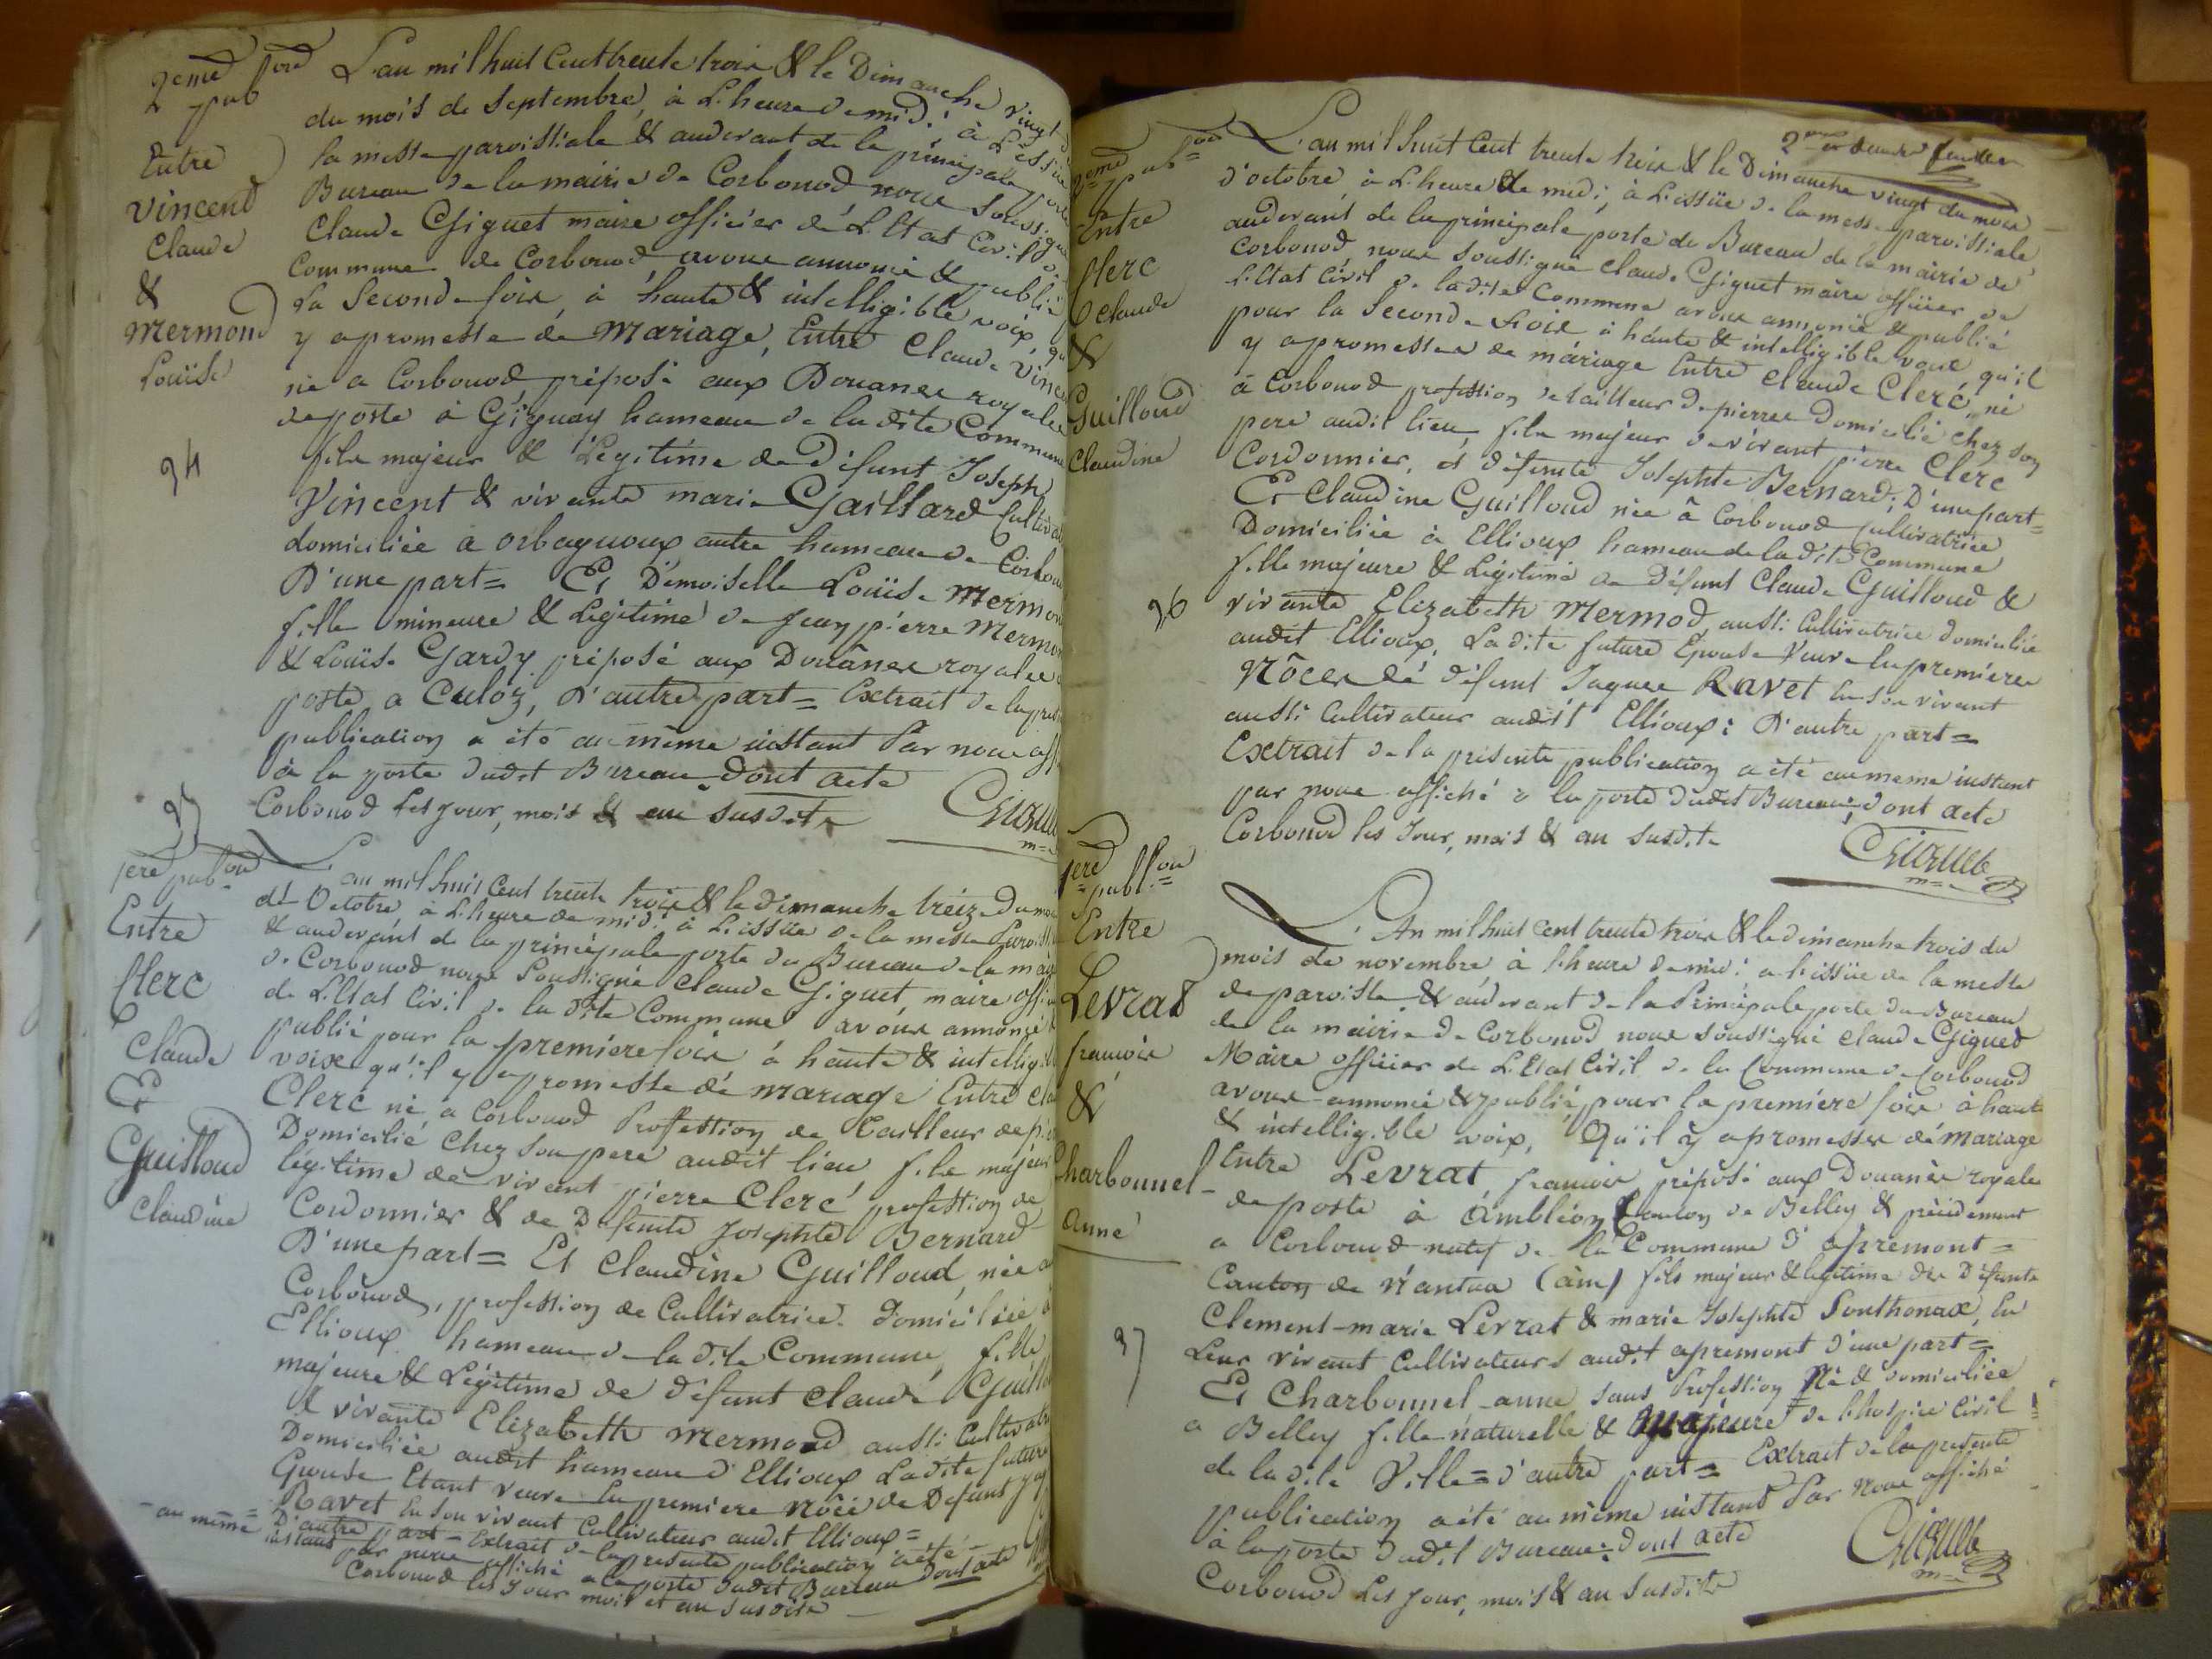 2eme pon
pub
Entre
Vincend
Claude
&
Mermond
Louïse
34
L'an mil huit Cent trente trois & le Dimanche vingt
du mois de Septembre, à L'heure de midi, à L'issüe
la messe paroissiale & au devant de la principale porte
Bureau de la mairie de Corbonod nous soussigné
Claude Giguet maire officier de L'Etat Civil
Commune de Corbonod avons annoncé & publié
La Seconde fois, à haute & intelligible voix qu
y a promesse de Mariage, Entre Claude Vince
né a Corbonod préposé aux Douanes royales
de poste à Gignay hameau de la dite Commune
fils majeur & Légitime de défunt Joseph
Vincent & vivante marie Gaillard Cultiva
domiciliée a orbagnoux autre hameau de Corbono
D'une part= Et Demoiselle Louïse Mermon
fille mineure & Légitime de Jean pierre Mermon
& Louïse Gardy préposé aux Douânes royales
poste a Culoz, D'autre part= Extrait de la pres
publication a été au même instant Par nous aff
à la porte dudit Bureau Dont acte
Corbonod Les jour, mois & an susdits
Giguet
m=
35
1ere pubon
Entre
Clerc
Claude
Et
Guilloud
Claudine
L'an mil huit Cent trente trois & le dimanche treize du mo
d'Octobre, à L'heure de midi à L'issüe de la messe Parois
& au devant de la principale porte du Bureau de la mai
de Corbonod nous Soussigné Claude Giguet, maire offi
de L'Etat Civil de la dite Commune avons annoncé
publié pour la premiere fois à haute & intellig
voix qu'il y a promesse de mariage Entre Cla
Clerc né a Corbonod Profession de tailleur de pi
Domicilié Chez son pere audit lieu fils majeur
légitime de vivant pierre Clerc profession de
Cordonnier & de Défunte Josephte Bernard
D'une part= Et Claudine Guilloud, née a
Corbonod, profession de Cultivatrice Domiciliée à
Ellioux hameau de la dite Commune, fille
majeure & Légitime de défunt Claude Guill
& vivante Elizabeth Mermond aussi Cultivatri
Domiciliée audit hameau d'Ellioux La dite future
Epouse Etant veuve En premiere Nôce de Defunt
Ravet En son vivant Cultivateur audit Ellioux=
D'autre part= Extrait de la présente publication a été
- au même instant
par nous affiché a la porte dudit Bureau Dont acte
Corbonod les Jour mois et an Susdits
2eme publon
Entre
Clerc
Claude
&
Guilloud
Claudine
36
L'an mil huit Cent trente trois & le Dimanche vingt du mois
d'octobre, à L'heure de midi, à L'issüe de la messe paroissiale
au devant de la principale porte du Bureau de la mairie de
Corbonod nous soussigné Claude Giguet maire officier de
L'Etat Civil de la dite Commune avons annoncé & publié
pour la Seconde fois à haute & intelligible voix qu'il
y a promesse de mariage Entre Claude Clerc, né
à Corbonod profession de tailleur de pierres Domicilié chez son
pere audit lieu fils majeur de vivant pierre Clerc
Cordonnier, et défunte Josephte Bernard; D'une part=
Et Claudine Guilloud née à Corbonod Cultivatrice
Domiciliée à Ellioux hameau de la dite Commune
fille majeure & Légitime de défunt Claude Guilloud &
vivante Elizabeth Mermod, aussi Cultivatrice domiciliée
audit Ellioux. La dite future Epouse Veuve En premieres
Nôces de défunt Jaques Ravet En son vivant
aussi Cultivateur audit Ellioux: D'autre part=
Extrait de la présente publication a été au meme instant
par nous affiché a la porte dudit Bureau; dont acte
Corbonod les Jour, mois & an susdits
Giguet
m=
1ere publon
Entre
Levrat
françois
&
Charbonnel-
Anne
37
L'An mil huit cent trente trois & le dimanche trois du
mois de novembre à l'heure de midi a L'issüe de la messe
de paroisse & au devant de la Principale porte du Bureau
de la mairie de Corbonod nous soussigné Claude Giguet
Maire officier de L'Etat Civil de la Commune de Corbonod
avons annoncé & publié, pour la première fois à haute
& intelligible voix, Qu'il y a promesse de Mariage
Entre Levrat françois préposé aux Douanes royales
de poste à Ambléon Canton de Belley & précédemment
a Corbonod natif de la Commune d'apremont=
Canton de Nantua (ain) fils majeur & légitime de Défunts
Clement-marie Levrat & marie Josephte Sonthonax, En
Leur vivant Cultivateurs audit apremont d'une part=
Et Charbonnel-anne sans Profession Née & domiciliée
a Belley fille naturelle & Majeure de l'hospice Civil
de la dite Ville= d'autre part= Extrait de la présente
publication a été au même instant Par Nous affiché
à la porte dudit Bureau: dont acte
Corbonod Les jour, mois & an Susdits
Giguet
m=